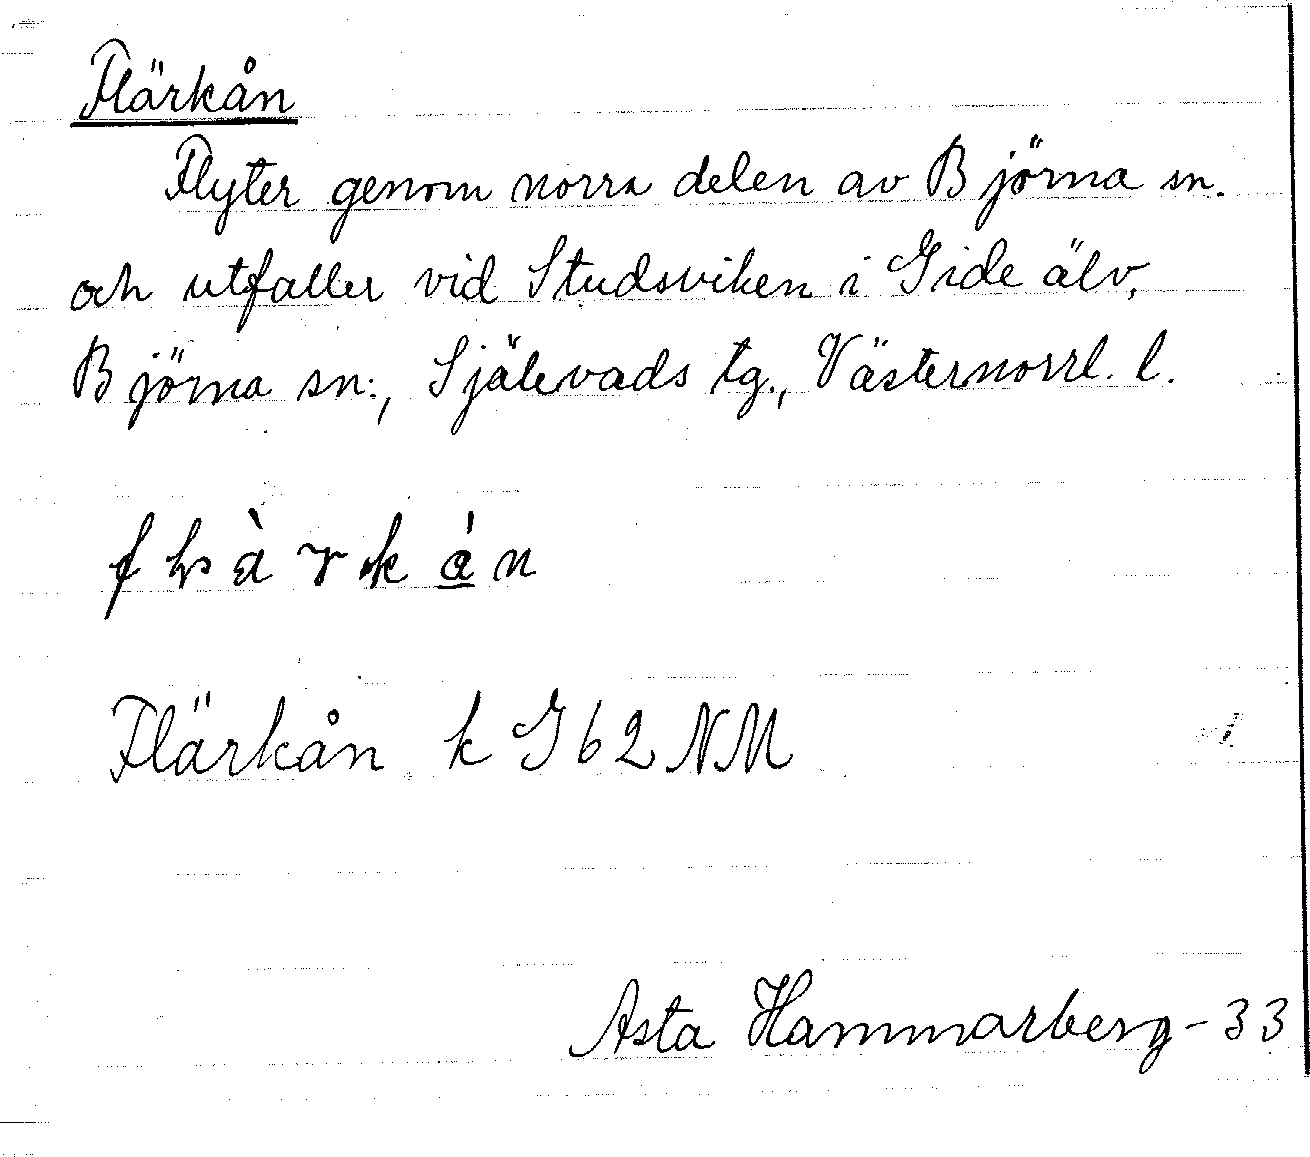 Flärkån
Flyter genom norra delen av Björna sn.
och utfaller vid Studsviken i Gide älv,
Björna sn., Själevads tg., Västernorrl. l.
Flärkån k G62NM
Asta Hammarberg -33